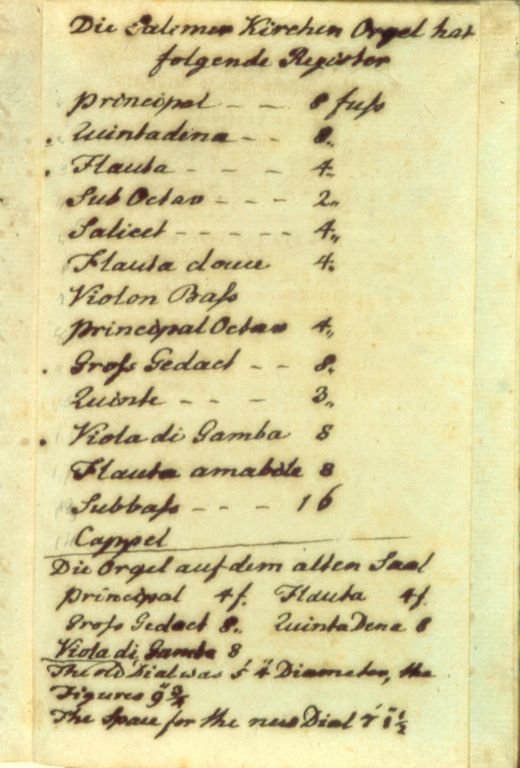 Die Salemer Kirchen Orgel hat
folgende Register
Principal - - 8 fuß
Quintadena - - 8,,
Flauta - - - 4,,
Sub Octav - - - 2,,
Salicet - - - - - 4,,
Flauta douce 4,,
Violon Baß
Principal Octav 4,,
Groß Gedact - - 8,,
Quinte - - - 3,,
Viola di Gamba 8
Flauta amabile 8
Subbaß - - - 16
Cappel
Die Orgel auf dem alten Saal
Principal 4f. Flauta 4f.
Groß Gedact 8,, QuintaDena 8
Viola di Gamba 8
The old Dial was 5' 4" Diameter, the
Figures 9" 3/4
The Space for the new Dial 7' 1" 1/2